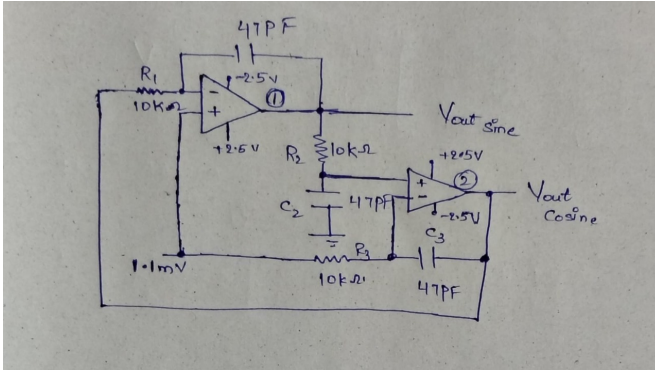 47PF
R1
10KΩ
-2.5V
①
+2.5V
Vout sine
R2
10kΩ
+2.5V
②
-2.5V
Vout
Cosine
C2
47PF
C3
47PF
R3
10kΩ
1.1mV